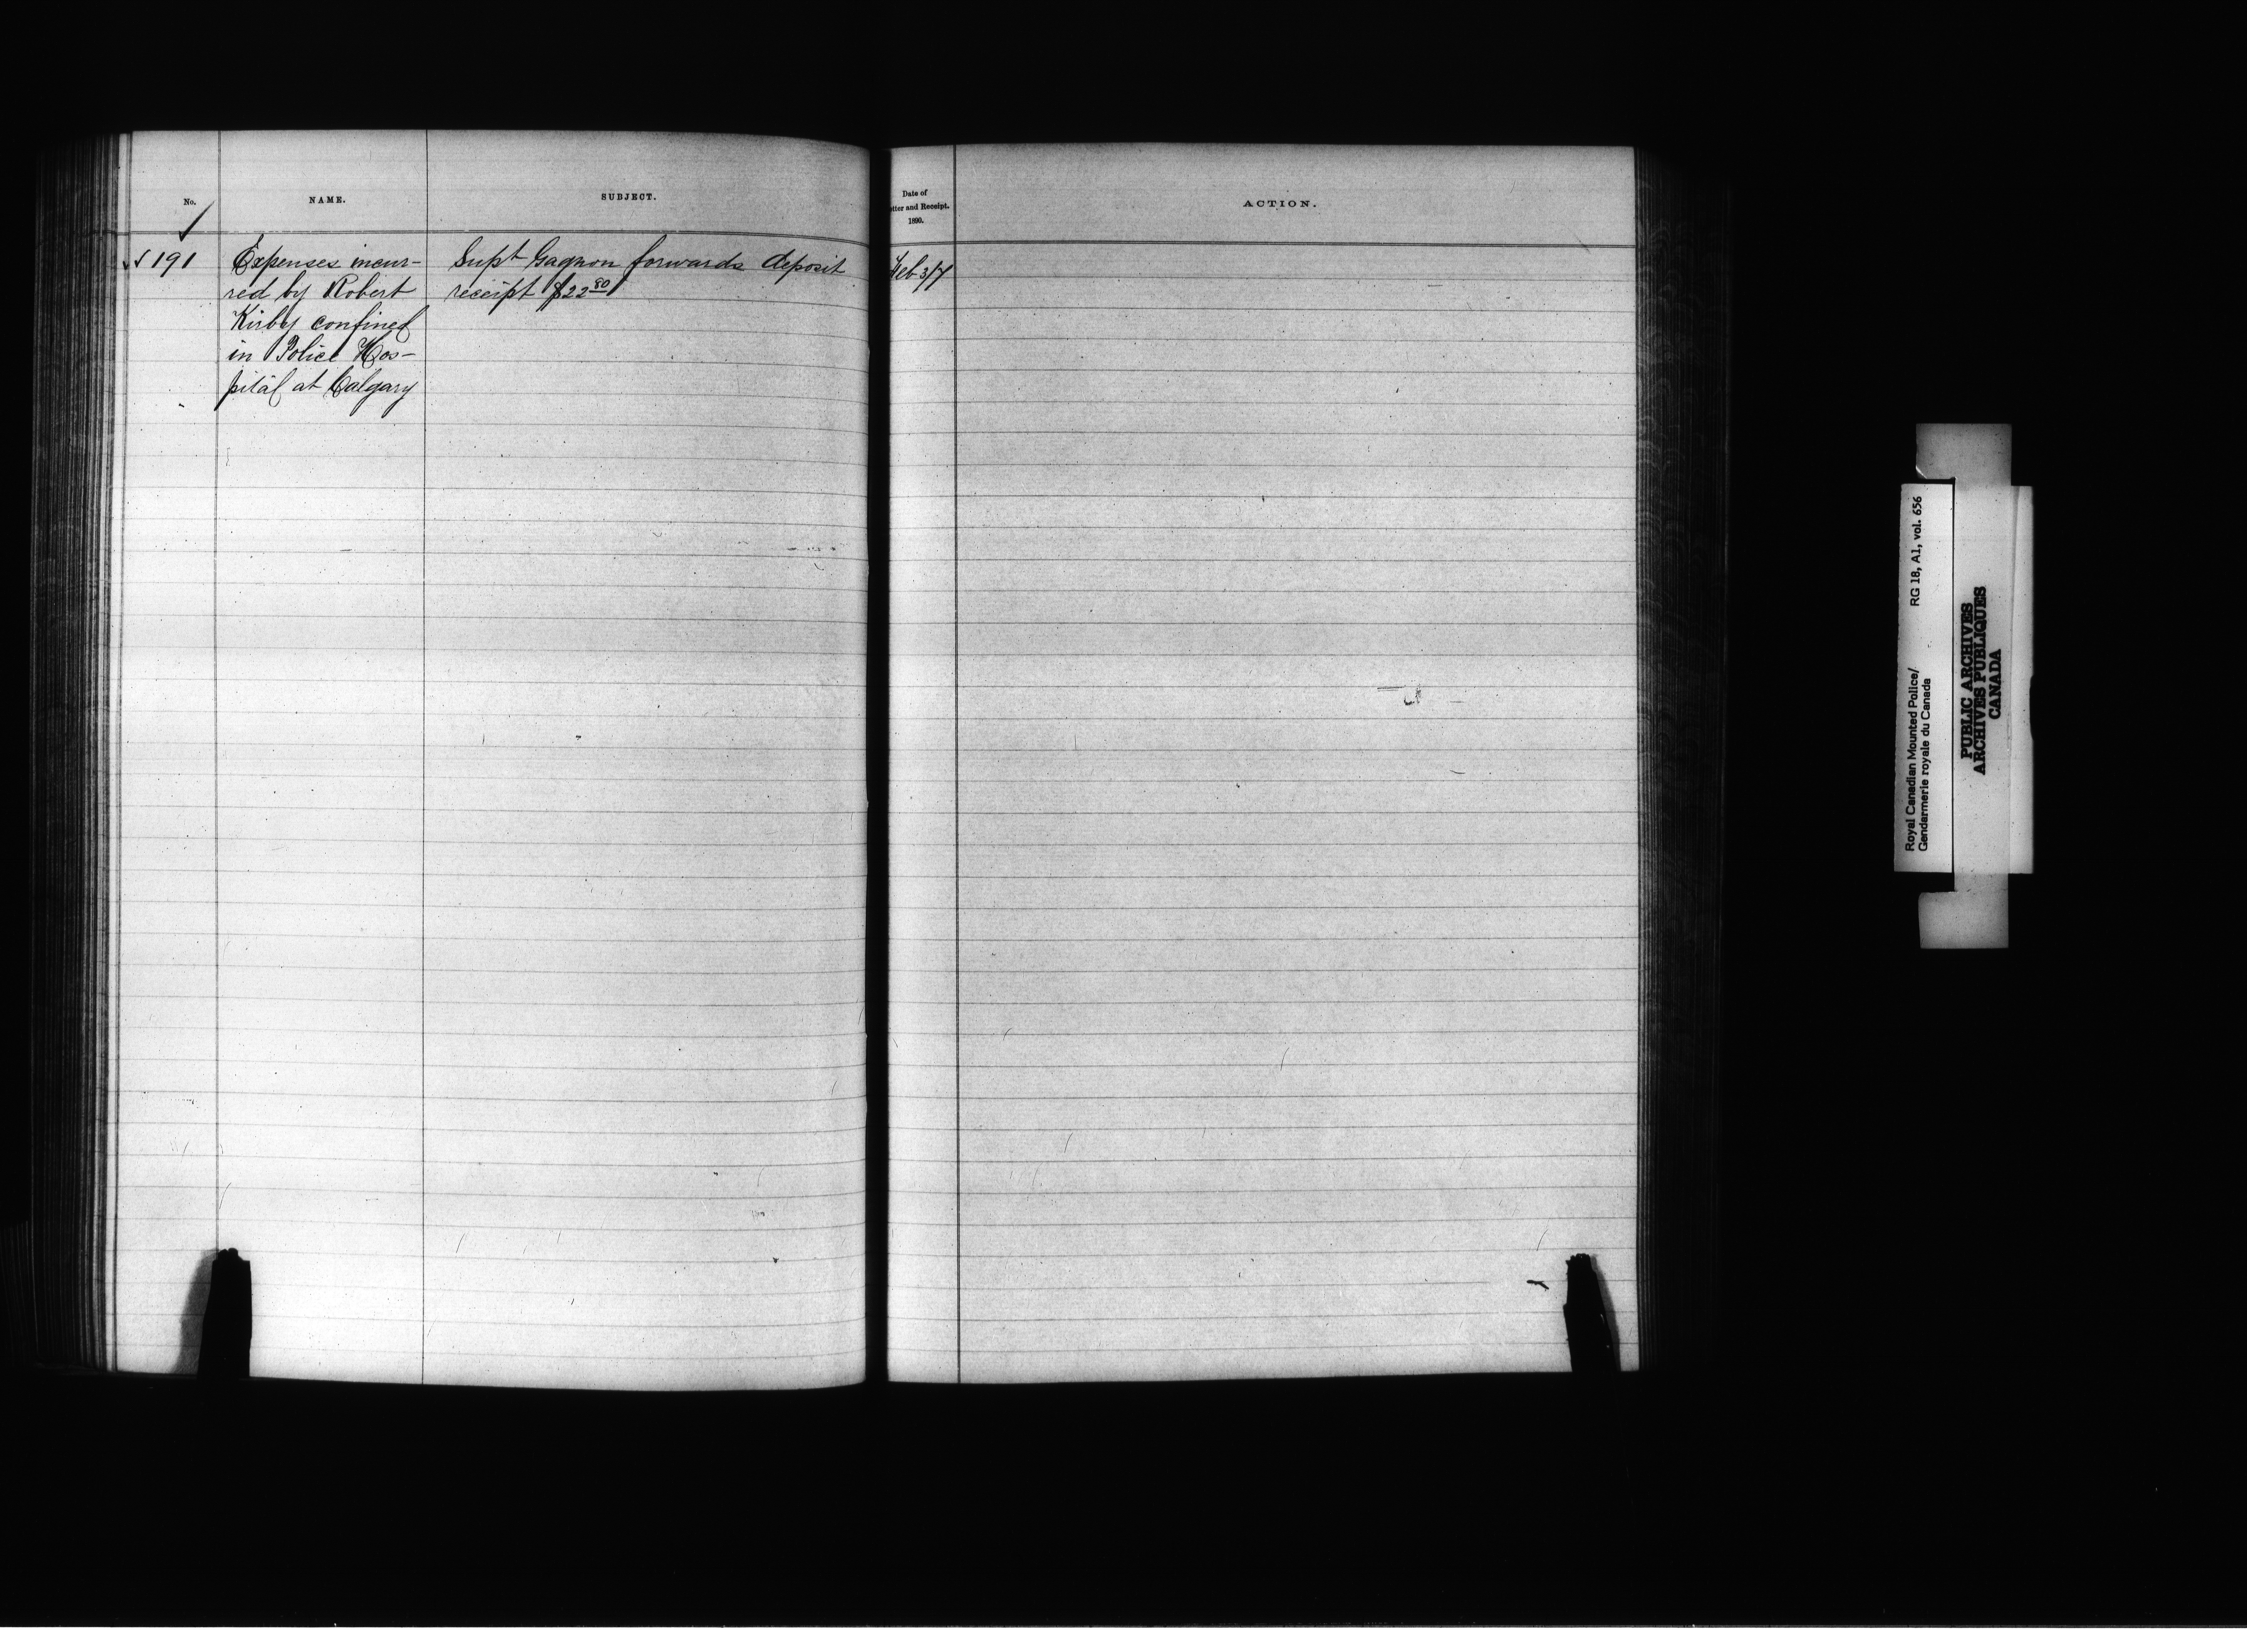 No.
NAME.
SUBJECT.
191
Expenses incur-
red by Robert
Kirby confined
in Police Hos-
pital at Calgary
Supt Gagnon forwards deposit
receipt $22 80
Date of
etter and Receipt.
1890.
ACTION.
Feb 3/7
Royal Canadian Mounted Police/ RG 18, A1, vol. 656
Gendarmerie royale du Canada
PUBLIC ARCHIVES
ARCHIVES PUBLIQUES
CANADA